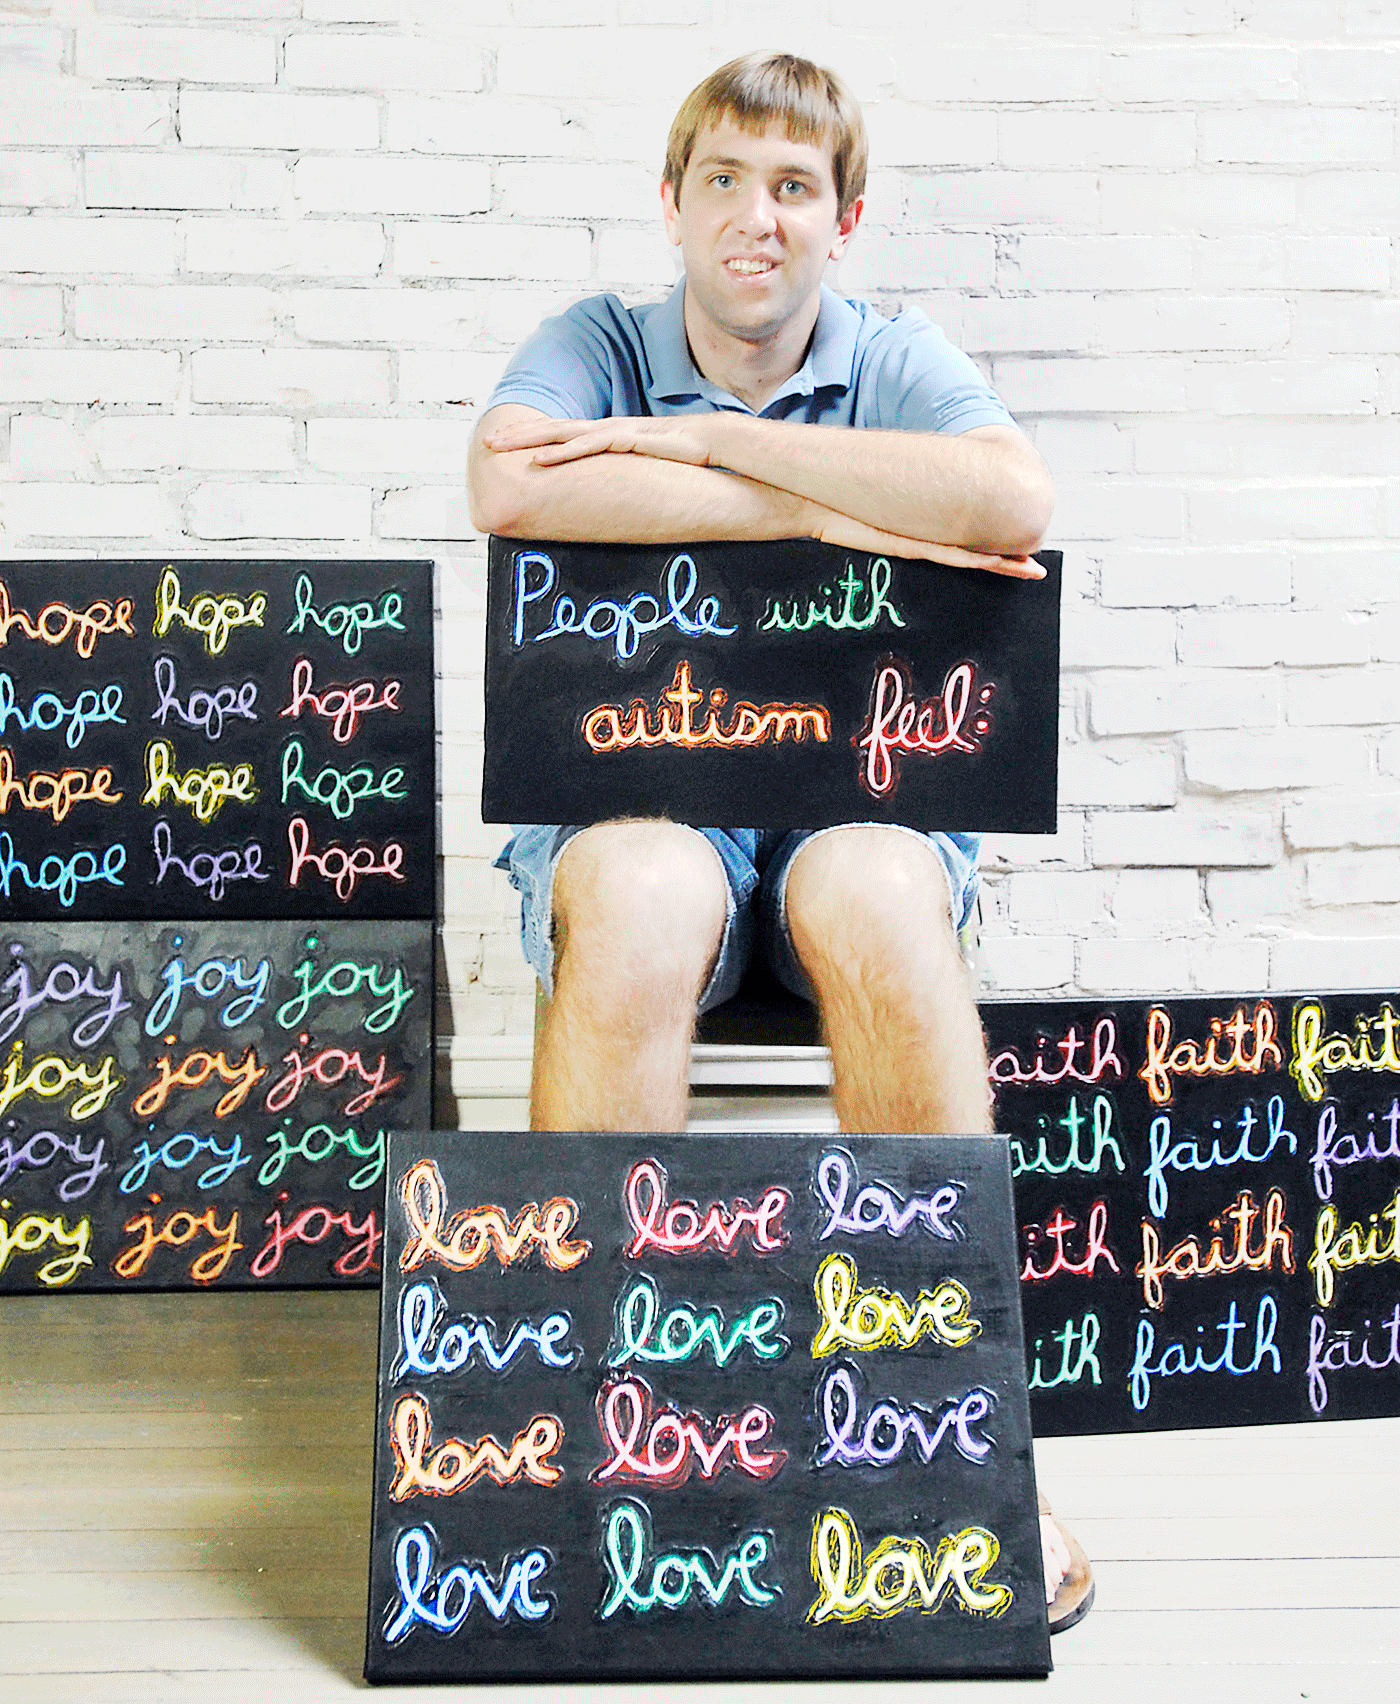 People with
autism feel:
hope hope hope
hope hope hope
hope hope hope
hope hope hope
joy joy joy
joy joy joy
joy joy joy
joy joy joy
love love love
love love love
love love love
love love love
aith faith fait
aith faith fait
ith faith fait
ith faith fait